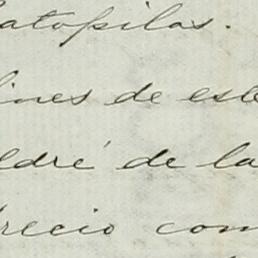 atopilas.
ines de este
ldré de la
recio com